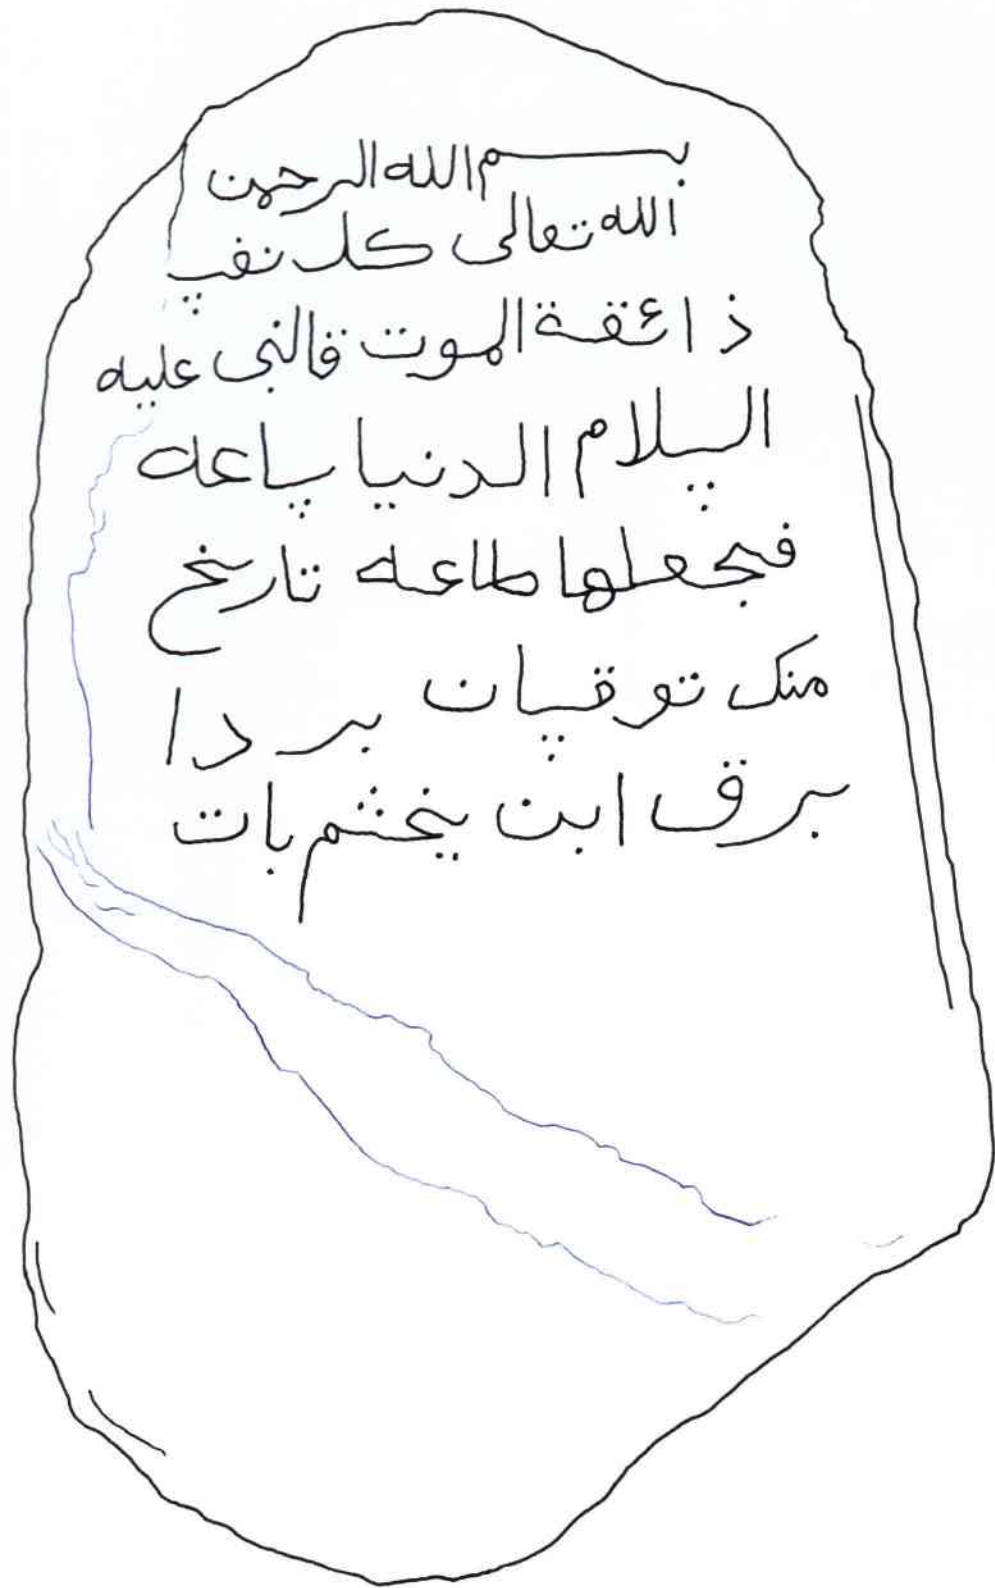 بسم الله الرحمن
الله تعالى كل نفپ
ذائقة الموت قالنبى عليه
الپلام الدنيا پاعه
فجعلها طاعه تاريخ
منك توقپان بردا
برق ابن يخشم بات